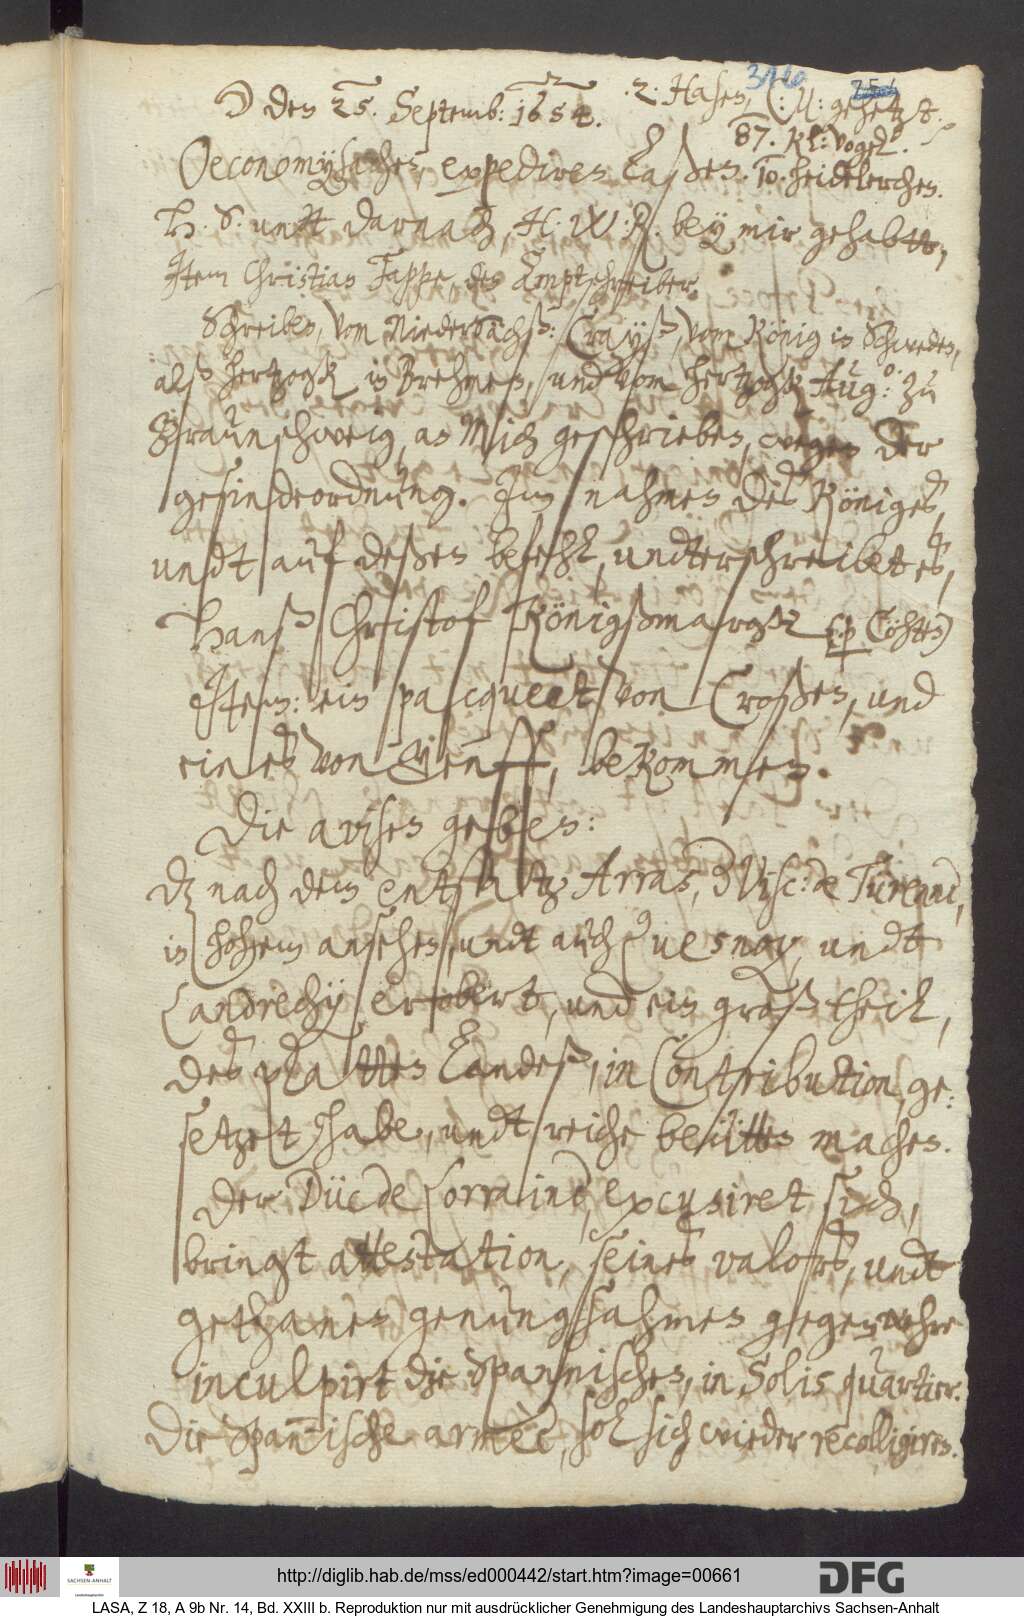 316 254
☽ den 25. Septemb: 1654. 2. Hasen, (: M: gehetzt.
87. kl: Vogel.
Oeconomysachen, expediren laßen. 10. heidelerchen.
H. S: undt darnach, H: W: R. beÿ mir gehabtt,
Item Christian Jappe, den Amptschreiber.
Schreiben, vom NiederSächß: Crayß, vom König in Schweden,
alß hertzogk in Brehmen, und vom hertzogk Aug:o zu
Braunschweig, an Mich geschrieben, wegen der
gesindeordnung. Im nahmen des Königes,
undt auf deßen befehl, undterschreibet es,
Hanß Christof Königßmargk
Item: ein pacqueet von Croßen, und
eines von Ÿenff, bekommen.
Die avisen geben:
dz nach dem entsatz Arras, d Visc: de Türenne,
in hohem ansehen, undt auch Quesnoy, undt
Landrechÿ, erobert, und ein groß theil,
des platten Landeß, in Contribution, ge:
setzet habe, undt reiche beütten machen.
Der Düc de Lorraine, excusiret sich,
bringt attestation, seines valors, undt
gethanen genungsahmen gegenwehre
inculpirt die Spannischen, in Solis quartier.
Die Spannische armèe, sol sich wieder recolligiren.
http://diglib.hab.de/mss/ed000442/start.htm?image=00661
SACHSEN-ANHALT
DFG
LASA, Z 18, A 9b Nr. 14, Bd. XXIII b. Reproduktion nur mit ausdrücklicher Genehmigung des Landeshauptarchivs Sachsen-Anhalt